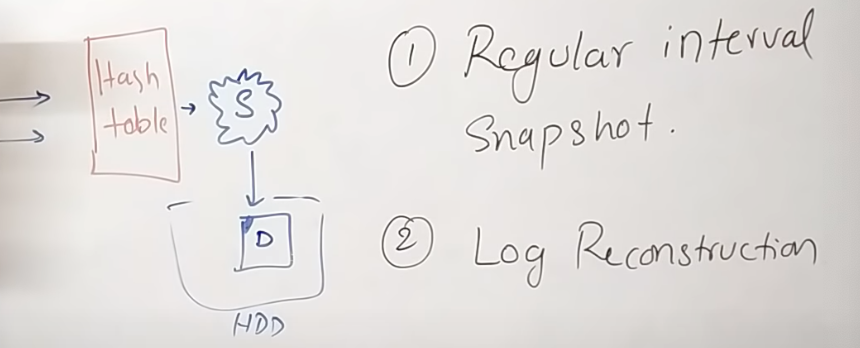 Hash
table
S
D
HDD
① Regular interval
Snapshot.
② Log Reconstruction